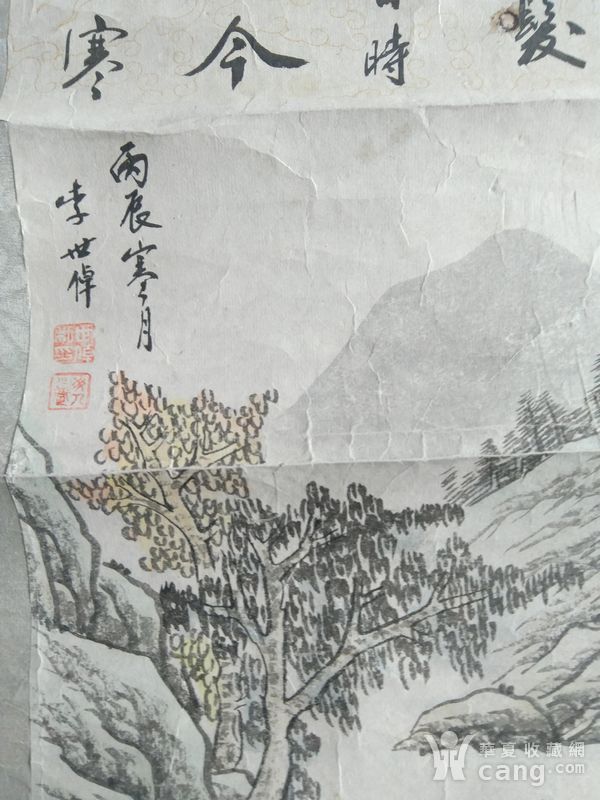 髮
時
今
寒
丙辰寒月
李世倬
華夏收藏網
cang.com